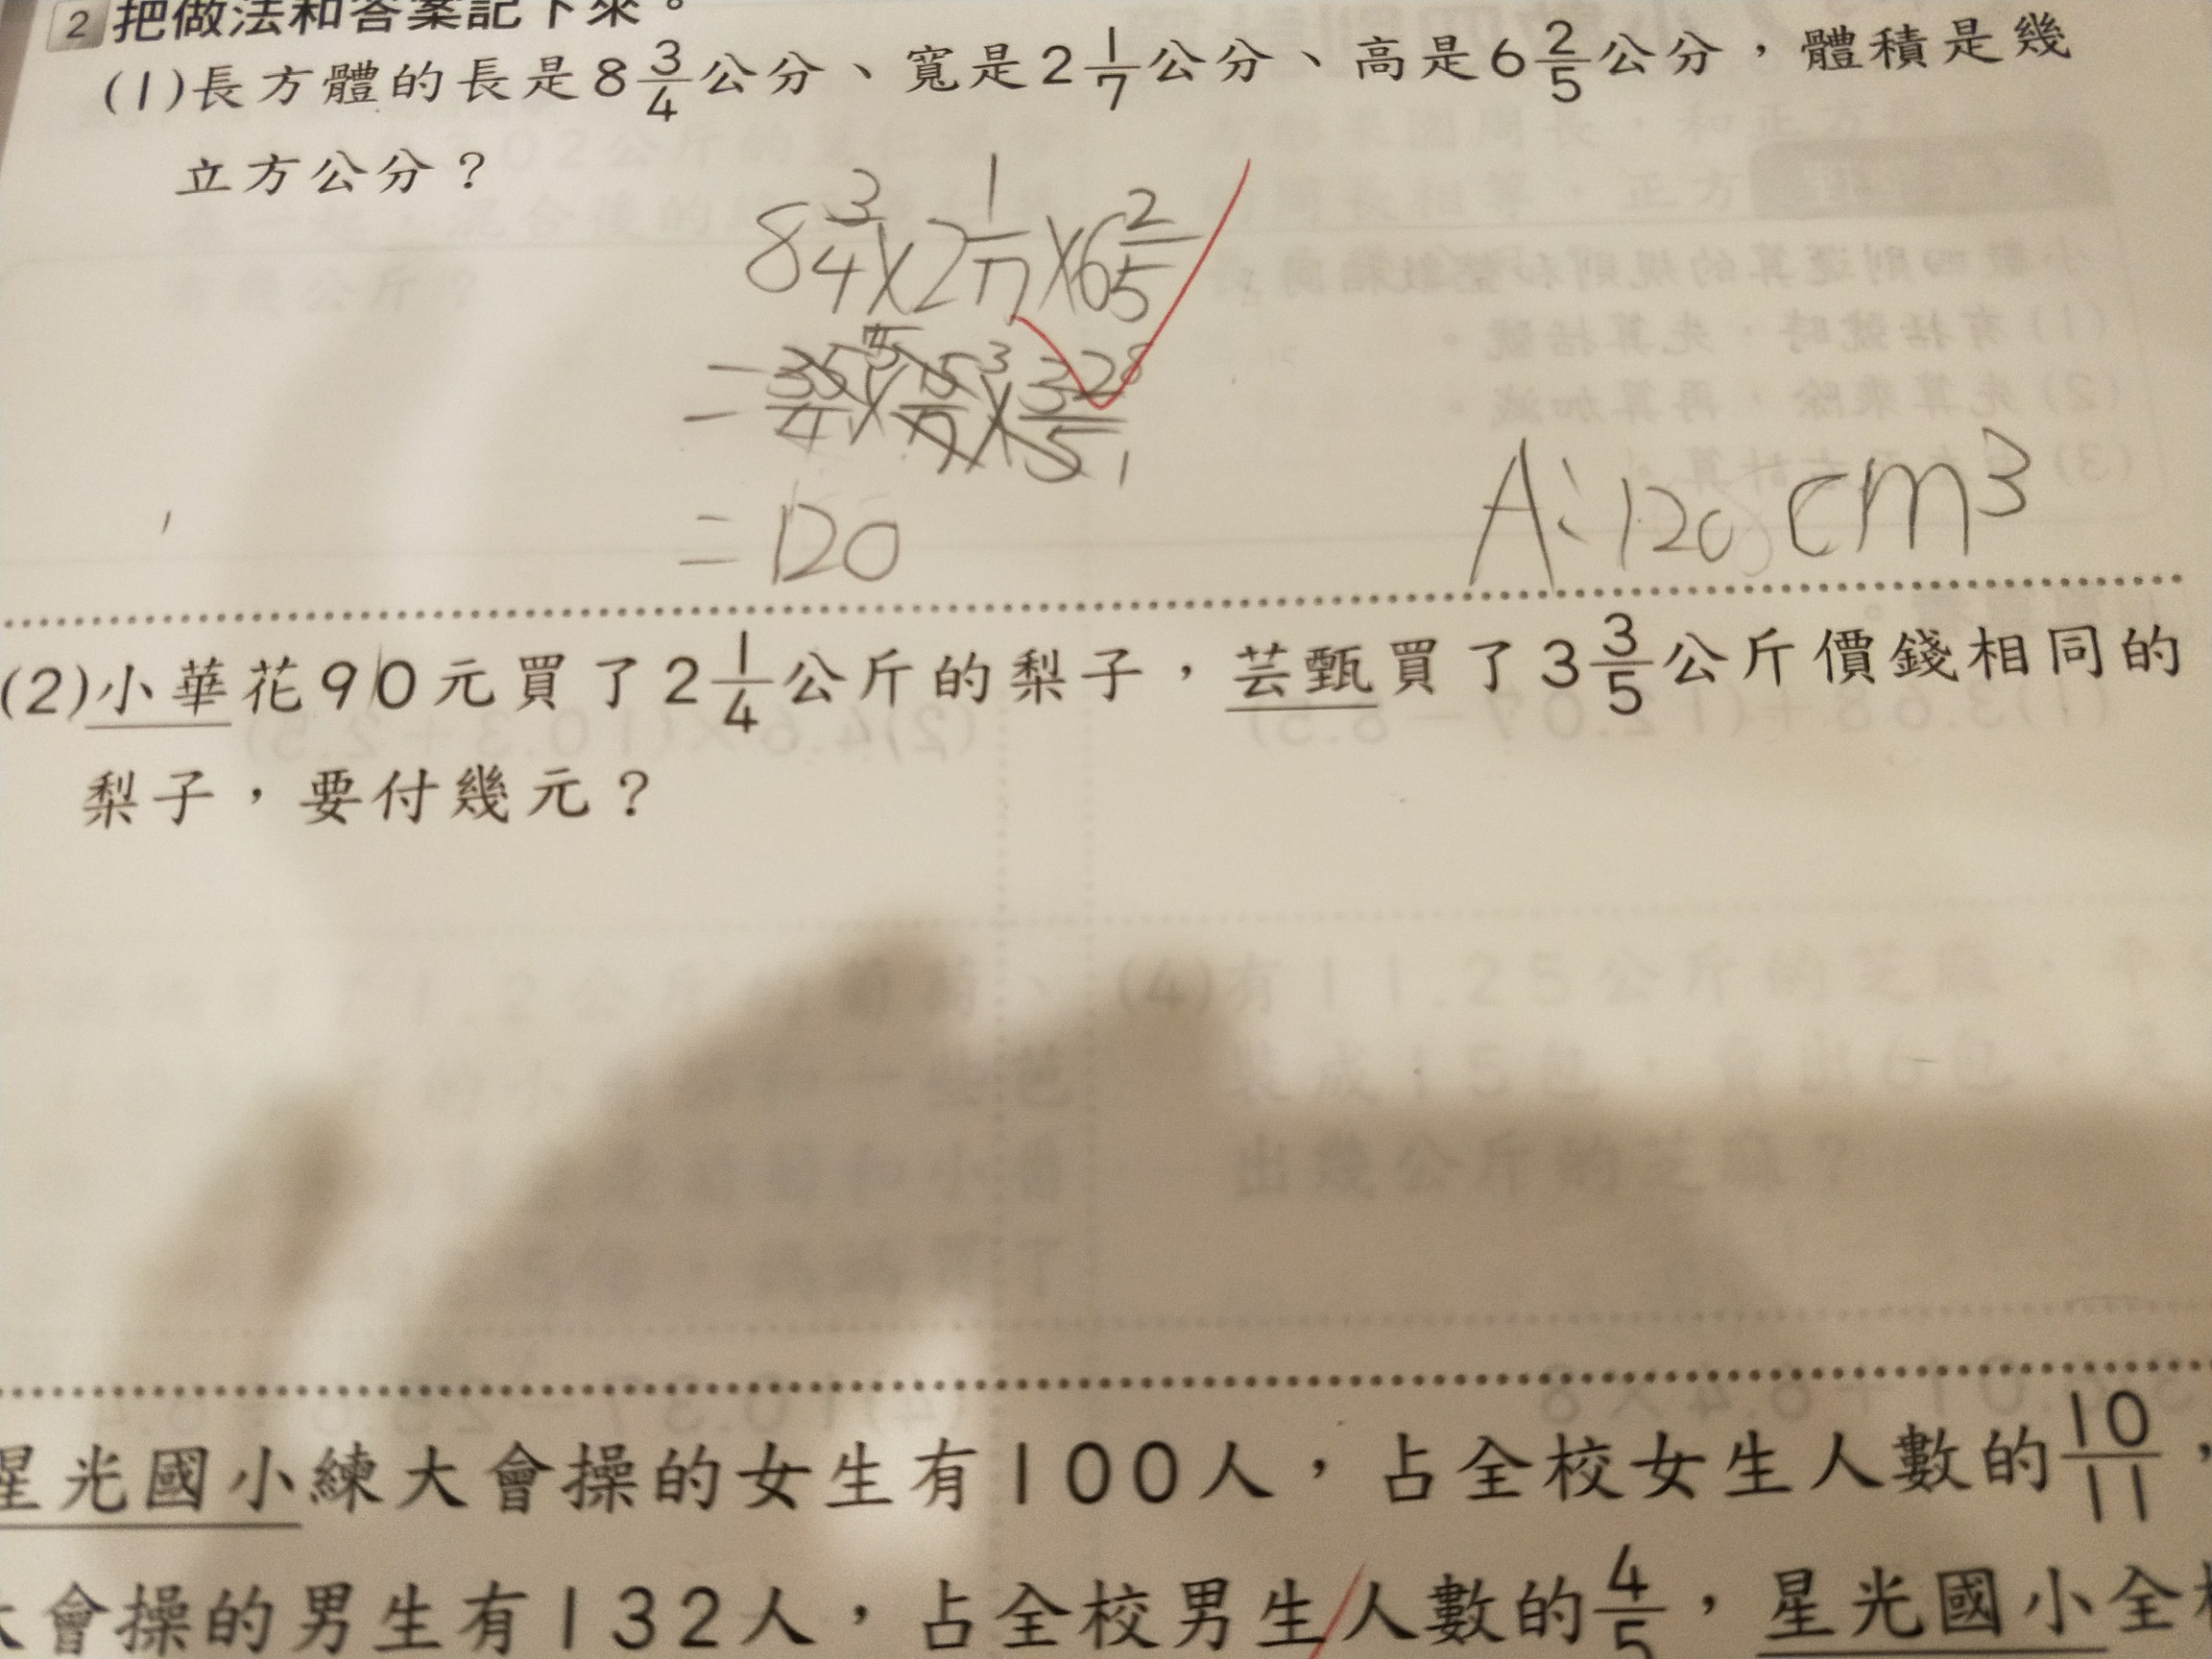 2 把做法和答案記下來。
(1)長方體的長是8 3/4公分、寬是2 1/7公分、高是6 2/5公分，體積是幾
立方公分？
8 3/4×2 1/7×6 2/5
=35/4×15/7×32/5
=120
A:120cm³
(2)小華花90元買了2 1/4公斤的梨子，芸甄買了3 3/5公斤價錢相同的
梨子，要付幾元？
星光國小練大會操的女生有100人，占全校女生人數的10/11，
大會操的男生有132人，占全校男生人數的4/5，星光國小全